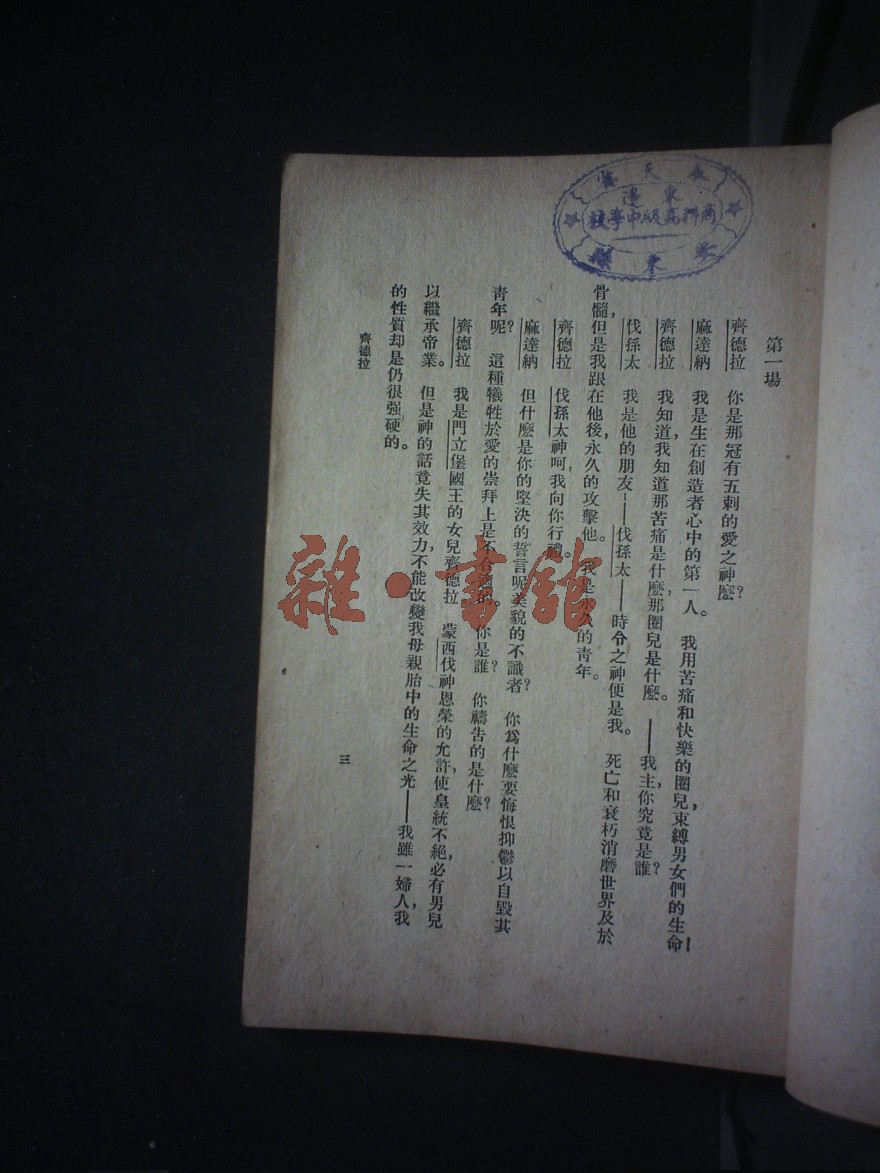 第一場
齊德拉　你是那冠有五刺的愛之神麽？
麻達納　我是生在創造者心中的第一人。　我用苦痛和快樂的圈兒，束縛男女們的生命！
齊德拉　我知道，我知道那苦痛是什麽，那圈兒是什麽。　——我主，你究竟是誰？
伐孫太　我是他的朋友——伐孫太——時令之神便是我。　死亡和衰朽消磨世界及於
骨髓，但是我跟在他後，永久的攻擊他。　我是永久的青年。
齊德拉　伐孫太神呵，我向你行禮。
麻達納　但什麽是你的堅決的誓言呢美貌的不識者？　你爲什麽要悔恨抑鬱以自毀其
青年呢？　這種犧牲於愛的崇拜上是不合適的。　你是誰？　你禱告的是什麽？
齊德拉　我是門立堡國王的女兒齊德拉　蒙西伐神恩榮的允許，使皇統不絕，必有男兒
以繼承帝業。　但是神的話竟失其效力，不能改變我母親胎中的生命之光——我雖一婦人，我
的性質却是仍很强硬的。
齊德拉
三
東邊
商科高級中學校
雜·書館